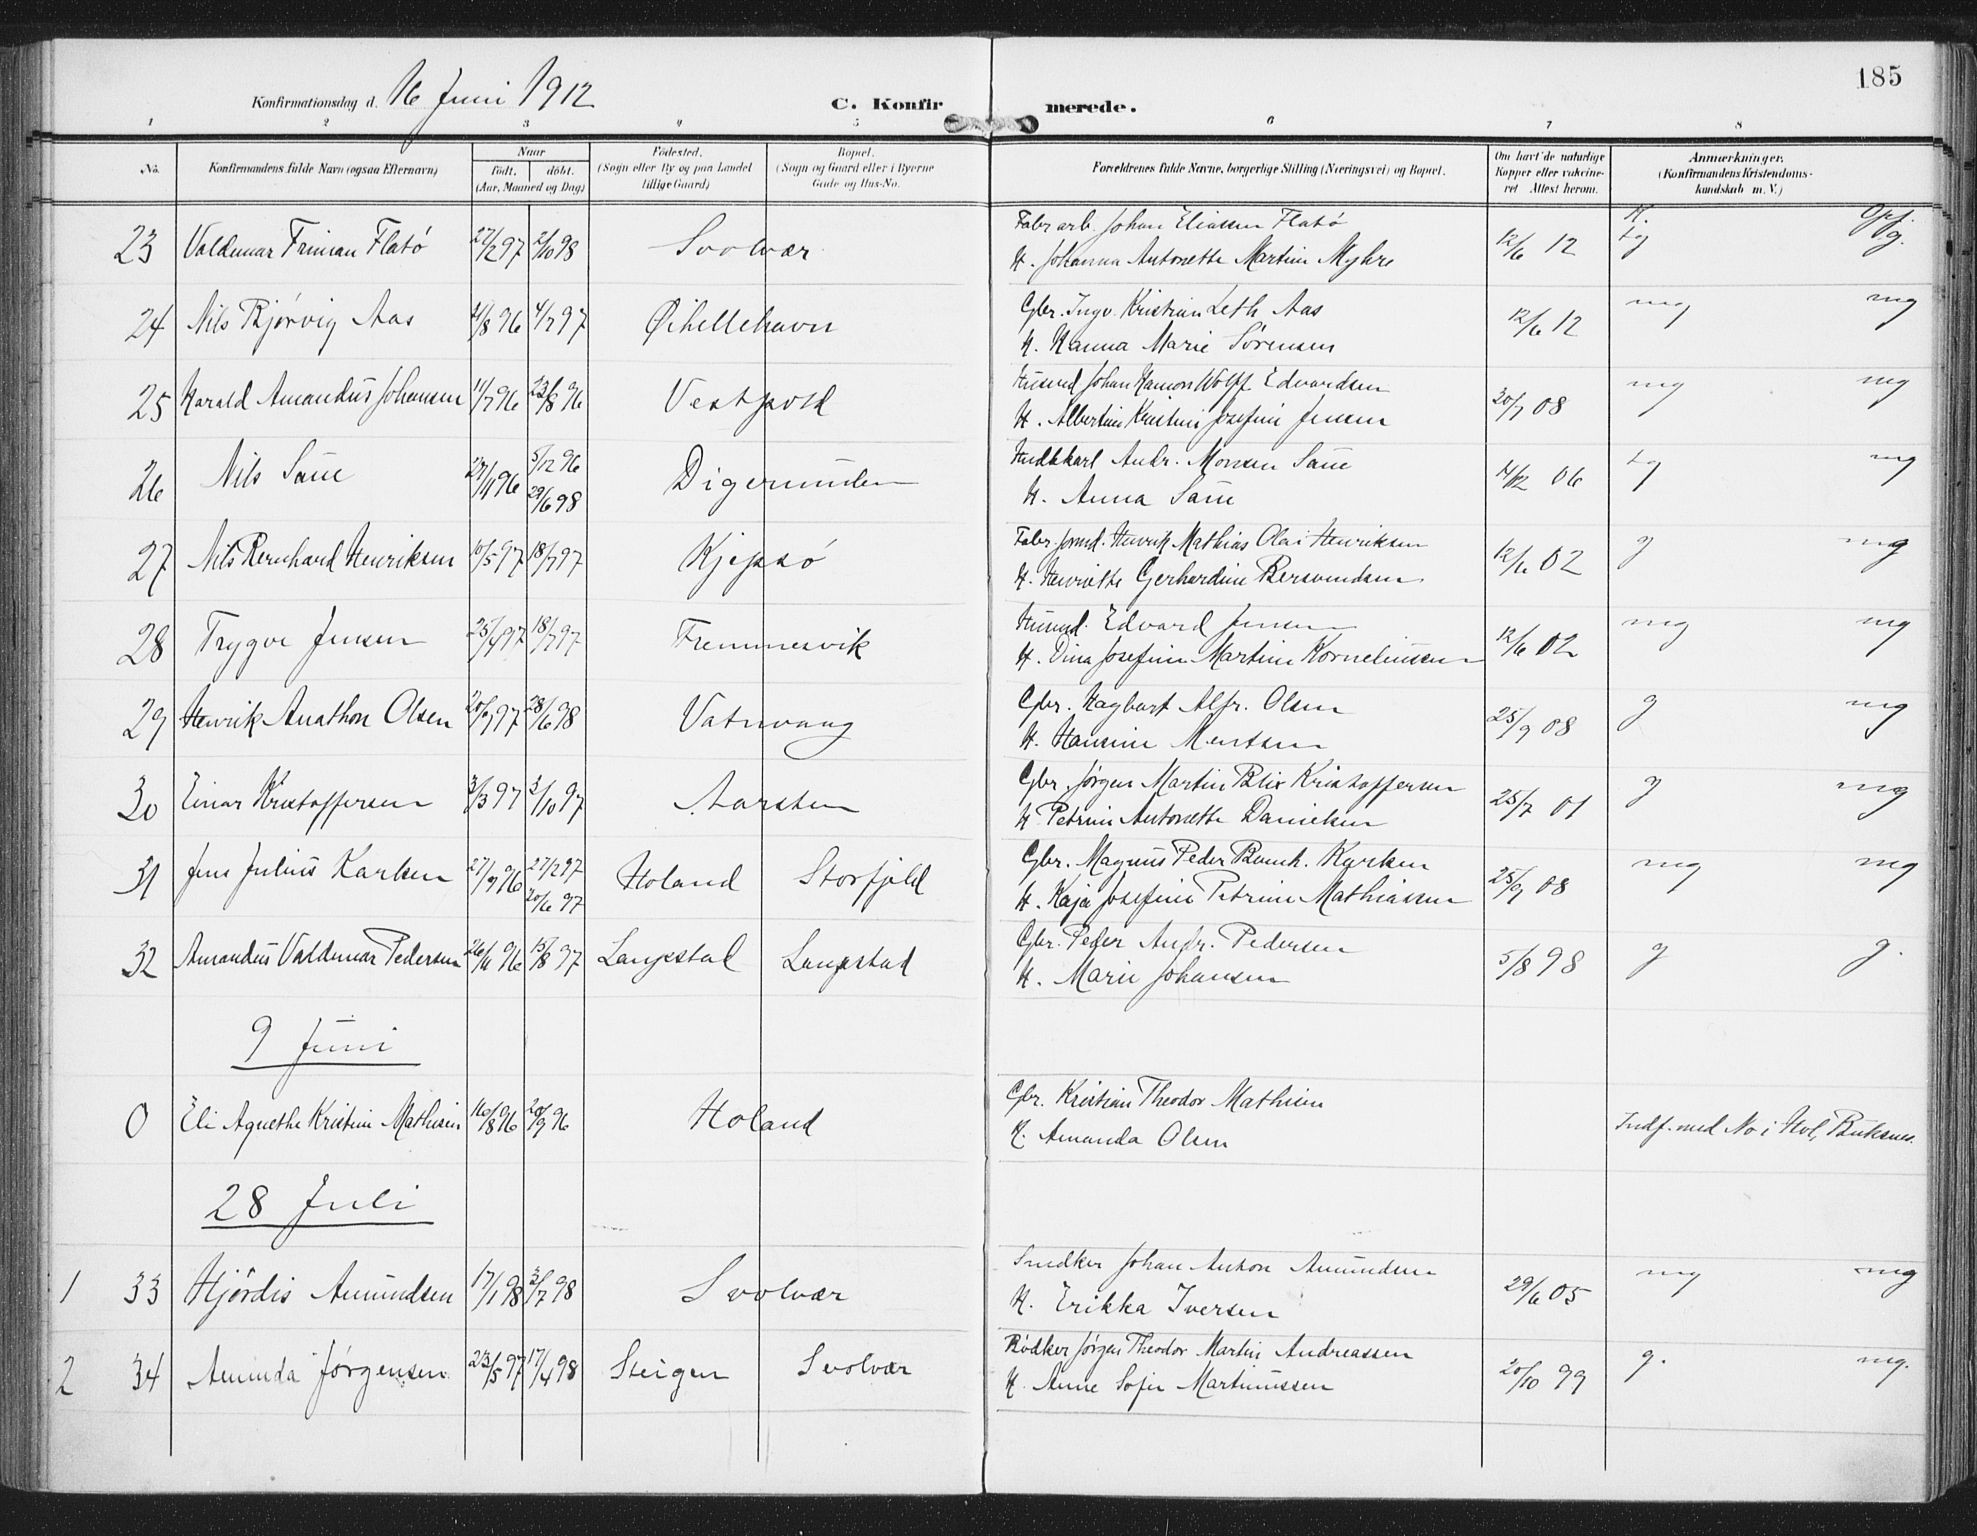 185
Konfirmationsdag d. 16 Juni 1912 C. Konfirmerede.
1 2 3 4 5 6 7 8
No. Konfirmandens fulde Navn (ogsaa Efternavn) Naar født. døbt. (Aar, Maaned og Dag) Fødested. (Sogn eller By og paa Landet tillige Gaard) Bopæl. (Sogn og Gaard eller i Byerne Gade og Hus-No. Forældrenes fulde Navne, borgerlige Stilling (Næringsvei) og Bopæl. Om havt de naturlige Kopper eller vakcineret Attest herom. Anmærkninger. (Konfirmandens Kristendomskundskab m. V.)
K. Opf.
23 Valdemar Friman Flatö 27/12 97 2/10 98 Svolvær Fabr arb. Johan Eliassen Flatö 12/6 12 tg g.
H. Johanna Antonette Martine Myhre
24 Nils Bjørvig Aas 4/7 97 Gbr. Ingv. Kristian Leth Aas 12/6 12 mg mg
H. Hanna Marie Sörensen
25 Harald Amandus Johansen 11/7 96 23/8 96 Vestpold Husmd Johan Hamon Wolff Edvardsen 20/7 08 mg mg
H. Albertine Kristine Josefine Jensen
26 Nils Saue 5/12 96 29/6 98 Digermulen Andr. Monsen Saue 06 tg mg
H. Anna Saue
27 Nils Bernhard Henriksen 10/5 97 18/7 97 Kjepsö Fabr. formd. Henrik Mathias Olai Henriksen 12/6 02 g mg
H. Henriette Gerhardine Bersvendsen
28 Trygve Jensen 25/4 97 18/7 97 Fremmesvik Husmd. Edvard Jensen 12/6 02 mg mg
H. Dina Josefine Martine Korneliussen
29 Henrik Anathon Olsen 28/6 98 Vatnvaag Gbr. Hagbart Alfr. Olsen 25/9 08 g mg
H. Hansine Mentsen
30 Einar Kristoffersen 3/3 97 3/10 97 Aarsten Gbr. Jörgen Martin Blix Kristoffersen 25/7 01 g mg
H Petrine Antonette Danielsen
31 Jens Julius Karlsen 27/9 96 27/2 97 20/6 97 Holand Storfjeld Gbr. Magnus Peder Karlsen 25/9 08 mg mg
H. Kaja Josefine Petrine Mathiassen
32 Amandus Valdemar Pedersen 26/11 96 15/8 97 Langstad Gbr. Peder Andr. Pedersen 5/8 98 g g.
H. Marie Johansen
9 Juni
0 Eli Agnethe Kristine Mathisen 16/8 96 20/9 96 Holand Gbr. Kristian Theodor Mathisen Indf. med No i Hol, Buksnes.
H. Amanda Olsen
28 Juli
1 33 Hjördis Amundsen 17/1 98 3/7 98 Svolvær Snedker Johan Anton Amundsen 29/6 05 mg mg
H. Erikka Iversen
2 34 Amunda Jörgensen 23/5 97 17/4 98 Steigen Svolvær Rödker Jörgen Theodor Martin Andreassen 20/10 99 g. mg.
H. Anne Sofie Martinussen